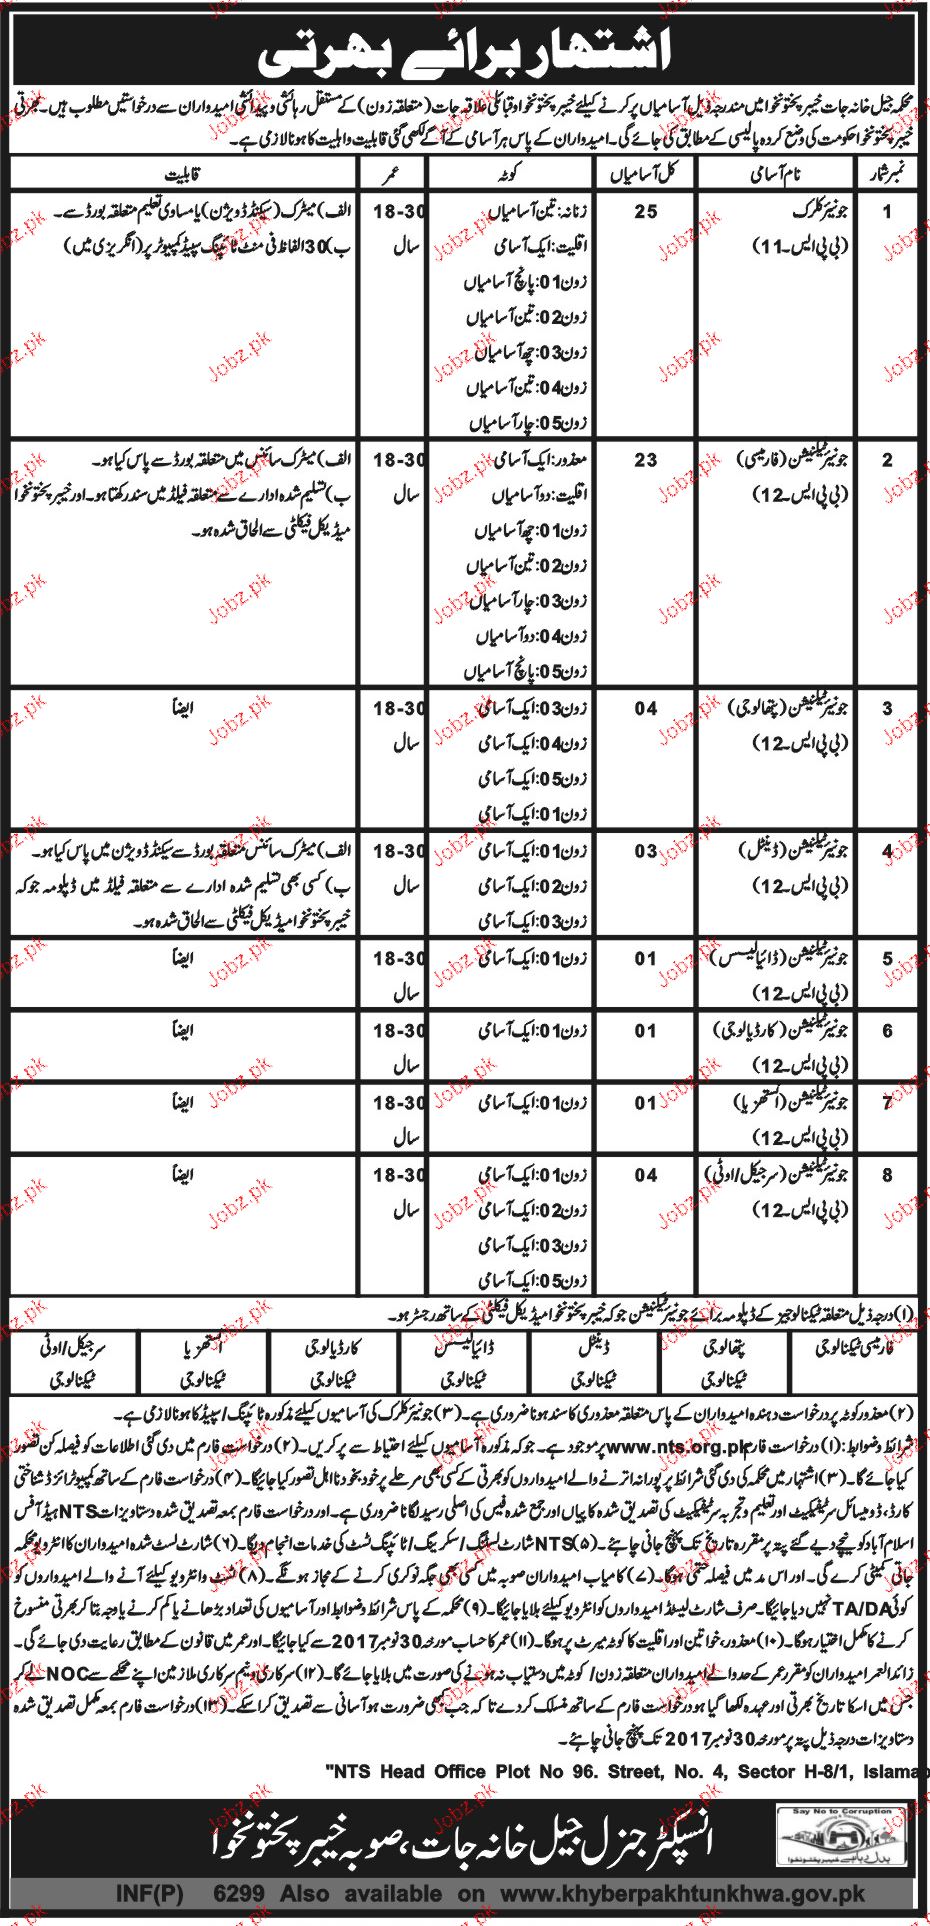 اشتہار برائے بھرتی
محکمہ جیل خانہ جات خیبر پختونخوا میں مندرجہ ذیل آسامیاں پر کرنے کیلئے خیبر پختونخوا و قبائلی علاقہ جات (متعلقہ زون) کے مستقل رہائشی و پیدائشی امیدواران سے درخواستیں مطلوب ہیں۔ بھرتی
خیبر پختونخوا حکومت کی وضع کردہ پالیسی کے مطابق کی جائے گی۔ امیدواران کے پاس ہر آسامی کے آگے لکھی گئی قابلیت و اہلیت کا ہونا لازمی ہے۔
نمبر شمار نام آسامی کل آسامیاں کوٹہ عمر قابلیت
1 جونیئر کلرک 25 زنانہ: تین آسامیاں 18-30 الف) میٹرک (سیکنڈ ڈویژن) یا مساوی تعلیم متعلقہ بورڈ سے۔
(بی پی ایس۔11) اقلیت: ایک آسامی سال ب) 30 الفاظ فی منٹ ٹائپنگ سپیڈ کمپیوٹر پر (انگریزی میں)
زون 01: پانچ آسامیاں
زون 02: تین آسامیاں
زون 03: چھ آسامیاں
زون 04: تین آسامیاں
زون 05: چار آسامیاں
2 جونیئر ٹیکنیشن (فارمیسی) 23 معذور: ایک آسامی 18-30 الف) میٹرک سائنس میں متعلقہ بورڈ سے پاس کیا ہو۔
(بی پی ایس۔12) اقلیت: دو آسامیاں سال ب) تسلیم شدہ ادارے سے متعلقہ فیلڈ میں سند رکھتا ہو۔ اور خیبر پختونخوا
زون 01: چھ آسامیاں میڈیکل فیکلٹی سے الحاق شدہ ہو۔
زون 02: تین آسامیاں
زون 03: چار آسامیاں
زون 04: دو آسامیاں
زون 05: پانچ آسامیاں
3 جونیئر ٹیکنیشن (پتھالوجی) 04 زون 03: ایک آسامی 18-30 ایضاً
(بی پی ایس۔12) زون 04: ایک آسامی سال
زون 05: ایک آسامی
زون 01: ایک آسامی
4 جونیئر ٹیکنیشن (ڈینٹل) 03 زون 01: ایک آسامی 18-30 الف) میٹرک سائنس متعلقہ بورڈ سے سیکنڈ ڈویژن میں پاس کیا ہو۔
(بی پی ایس۔12) زون 02: ایک آسامی سال ب) کسی بھی تسلیم شدہ ادارے سے متعلقہ فیلڈ میں ڈپلومہ جو کہ
زون 03: ایک آسامی خیبر پختونخوا میڈیکل فیکلٹی سے الحاق شدہ ہو۔
5 جونیئر ٹیکنیشن (ڈائیالیسس) 01 زون 01: ایک آسامی 18-30 ایضاً
(بی پی ایس۔12) سال
6 جونیئر ٹیکنیشن (کارڈیالوجی) 01 زون 01: ایک آسامی 18-30 ایضاً
(بی پی ایس۔12) سال
7 جونیئر ٹیکنیشن (انستھزیا) 01 زون 01: ایک آسامی 18-30 ایضاً
(بی پی ایس۔12) سال
8 جونیئر ٹیکنیشن (سرجیکل/اوٹی) 04 زون 01: ایک آسامی 18-30 ایضاً
(بی پی ایس۔12) زون 02: ایک آسامی سال
زون 03: ایک آسامی
زون 05: ایک آسامی
(۱) درجہ ذیل متعلقہ ٹیکنالوجیز کے ڈپلومہ برائے جونیئر ٹیکنیشن جو کہ خیبر پختونخوا میڈیکل فیکلٹی کے ساتھ رجسٹر ہو۔
فارمیسی ٹیکنالوجی پتھالوجی ڈینٹل ڈائیالیسس کارڈیالوجی انستھزیا سرجیکل/اوٹی
ٹیکنالوجی ٹیکنالوجی ٹیکنالوجی ٹیکنالوجی ٹیکنالوجی ٹیکنالوجی
(۲) معذور کوٹہ پر درخواست دہندہ امیدواران کے پاس متعلقہ معذوری کا سند ہونا ضروری ہے۔ (۳) جونیئر کلرک کی آسامیوں کیلئے مذکورہ ٹائپنگ/سپیڈ کا ہونا لازمی ہے۔
شرائط و ضوابط: (۱) درخواست فارم www.nts.org.pk پر موجود ہے۔ جو کہ مذکورہ آسامیوں کیلئے احتیاط سے پر کریں۔ (۲) درخواست فارم میں دی گئی اطلاعات کو فیصلہ کن تصور
کیا جائے گا۔ (۳) اشتہار میں محکمہ کی دی گئی شرائط پر پورا نہ اترنے والے امیدواروں کو بھرتی کے کسی بھی مرحلے پر خود بخود نا اہل تصور کیا جائیگا۔ (۴) درخواست فارم کے ساتھ کمپیوٹرائزڈ شناختی
کارڈ، ڈومیسائل سرٹیفکیٹ اور تعلیم و تجربہ سرٹیفکیٹ کی تصدیق شدہ کاپیاں اور جمع شدہ فیس کی اصلی رسید لگانا ضروری ہے۔ اور درخواست فارم بمعہ تصدیق شدہ دستاویزات NTS ہیڈ آفس
اسلام آباد کو نیچے دیے گئے پتہ پر مقررہ تاریخ تک پہنچ جانی چاہئے۔ (۵) NTS شارٹ لسٹنگ/سکریننگ/ٹائپنگ ٹسٹ کی خدمات انجام دیگا۔ (۶) شارٹ لسٹ شدہ امیدواران کا انٹرویو محکمہ
جاتی کمیٹی کرے گی۔ اور اس مد میں فیصلہ حتمی ہوگا۔ (۷) کامیاب امیدواران صوبہ میں کسی بھی جگہ نوکری کرنے کے مجاز ہونگے۔ (۸) ٹسٹ و انٹرویو کیلئے آنے والے امیدواروں کو
کوئی TA/DA نہیں دیا جائیگا۔ صرف شارٹ لسٹڈ امیدواروں کو انٹرویو کیلئے بلایا جائیگا۔ (۹) محکمہ کے پاس شرائط و ضوابط اور آسامیوں کی تعداد بڑھانے یا کم کرنے یا وجہ بتا کر بھرتی منسوخ
کرنے کا مکمل اختیار ہوگا۔ (۱۰) معذور، خواتین اور اقلیت کا کوٹہ میرٹ پر ہوگا۔ (۱۱) عمر کا حساب مورخہ 30 نومبر 2017 سے کیا جائیگا۔ اور عمر میں قانون کے مطابق رعایت دی جائے گی۔
زائد العمر امیدواران کو مقرر عمر کے حد والے امیدواران متعلقہ زون/کوٹہ میں دستیاب نہ ہونے کی صورت میں بلایا جائے گا۔ (۱۲) سرکاری و نیم سرکاری ملازمین اپنے محکمے سے NOC لے کر
جس میں اسکا تاریخ بھرتی اور عہدہ لکھا گیا ہو درخواست فارم کے ساتھ منسلک کر دے تاکہ جب بھی ضرورت ہو آسانی سے تصدیق کرا سکے۔ (۱۳) درخواست فارم بمعہ مکمل تصدیق شدہ
دستاویزات درجہ ذیل پتہ پر مورخہ 30 نومبر 2017 تک پہنچ جانی چاہئے۔
"NTS Head Office Plot No 96. Street, No. 4, Sector H-8/1, Islamab
انسپکٹر جنرل جیل خانہ جات، صوبہ خیبر پختونخوا
Say No to Corruption
INF(P) 6299 Also available on www.khyberpakhtunkhwa.gov.pk
Jobz.pk